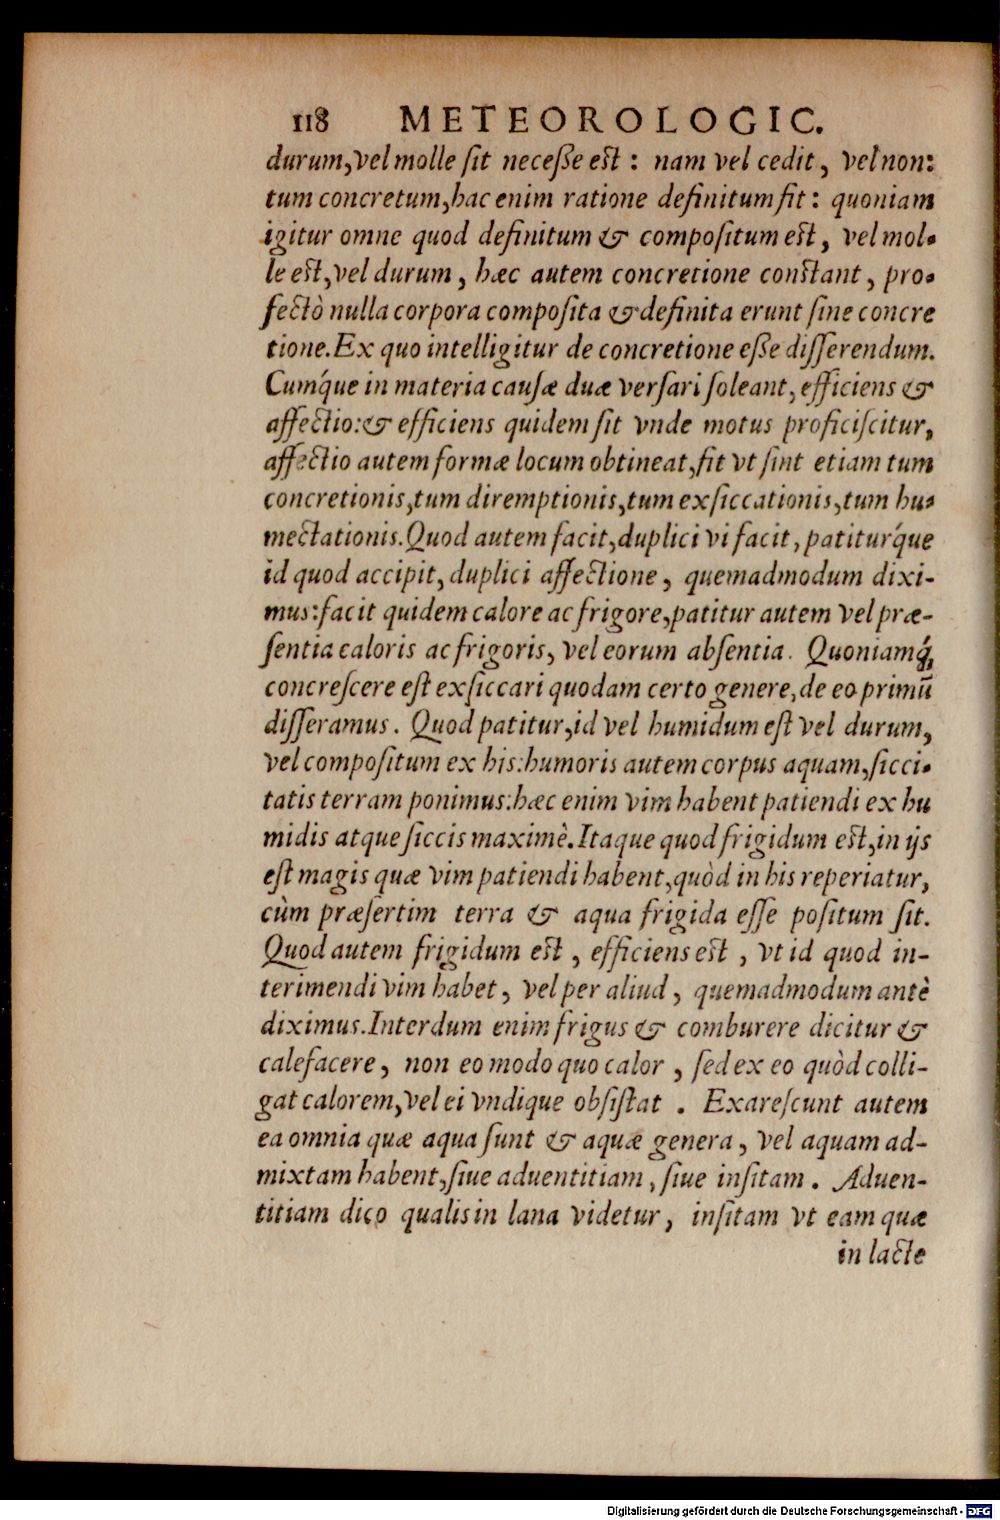 118 METEOROLOGIC.
durum, vel molle ſit neceſſe eſt : nam vel cedit, vel non:
tum concretum, hac enim ratione definitum fit: quoniam
igitur omne quod definitum & compoſitum eſt, vel mol-
le eſt, vel durum, hæc autem concretione conſtant, pro-
fectò nulla corpora compoſita & definita erunt ſine concre
tione. Ex quo intelligitur de concretione eſſe diſſerendum.
Cumq́ue in materia cauſæ duæ verſari ſoleant, efficiens &
affectio: & efficiens quidem ſit vnde motus proficiſcitur,
affectio autem formæ locum obtineat, fit vt ſint etiam tum
concretionis, tum diremptionis, tum exſiccationis, tum hu-
mectationis. Quod autem facit, duplici vi facit, patiturq́ue
id quod accipit, duplici affectione, quemadmodum dixi-
mus: facit quidem calore ac frigore, patitur autem vel præ-
ſentia caloris ac frigoris, vel eorum abſentia. Quoniamq́;
concreſcere eſt exſiccari quodam certo genere, de eo primū
diſſeramus. Quod patitur, id vel humidum eſt vel durum,
vel compoſitum ex his: humoris autem corpus aquam, ſicci-
tatis terram ponimus: hæc enim vim habent patiendi ex hu
midis atque ſiccis maximè. Itaque quod frigidum eſt, in ijs
eſt magis quæ vim patiendi habent, quòd in his reperiatur,
cùm præſertim terra & aqua frigida eſſe poſitum ſit.
Quod autem frigidum eſt, efficiens eſt, vt id quod in-
terimendi vim habet, vel per aliud, quemadmodum antè
diximus. Interdum enim frigus & comburere dicitur &
calefacere, non eo modo quo calor, ſed ex eo quòd colli-
gat calorem, vel ei vndique obſiſtat. Exareſcunt autem
ea omnia quæ aqua ſunt & aquæ genera, vel aquam ad-
mixtam habent, ſiue aduentitiam, ſiue inſitam. Aduen-
titiam dico qualis in lana videtur, inſitam vt eam quæ
in lacte
Digitalisierung gefördert durch die Deutsche Forschungsgemeinschaft - DFG